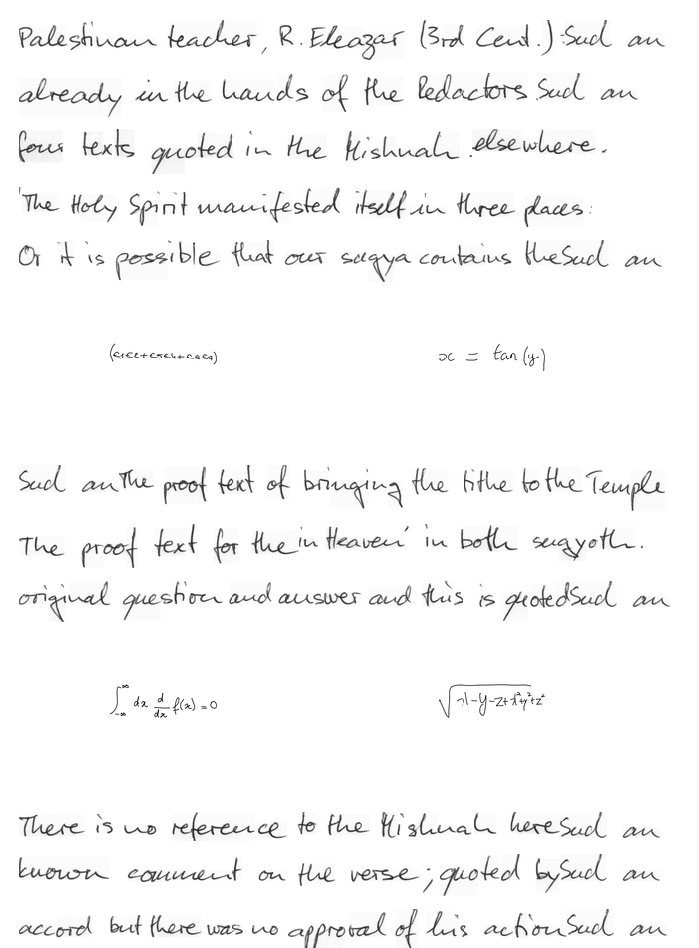 Palestinian teacher, R. Eleazar (3rd Cent.). Sud an
already in the hands of the Redactors. Sud an
four texts quoted in the Mishnah. elsewhere.
'The Holy Spirit manifested itself in three places:
Or it is possible that our sugya contains the Sud an
x = tan(y)
Sud an The proof text of bringing the tithe to the Temple
The proof text for the in Heaven' in both sugyoth.
original question and answer and this is quoted Sud an
∫_{-∞}^{∞} dx d/dx f(x) = 0
√(1-y-z+x²+y²+z²)
There is no reference to the Mishnah here Sud an
known comment on the verse; quoted by Sud an
accord but there was no approval of his action Sud an